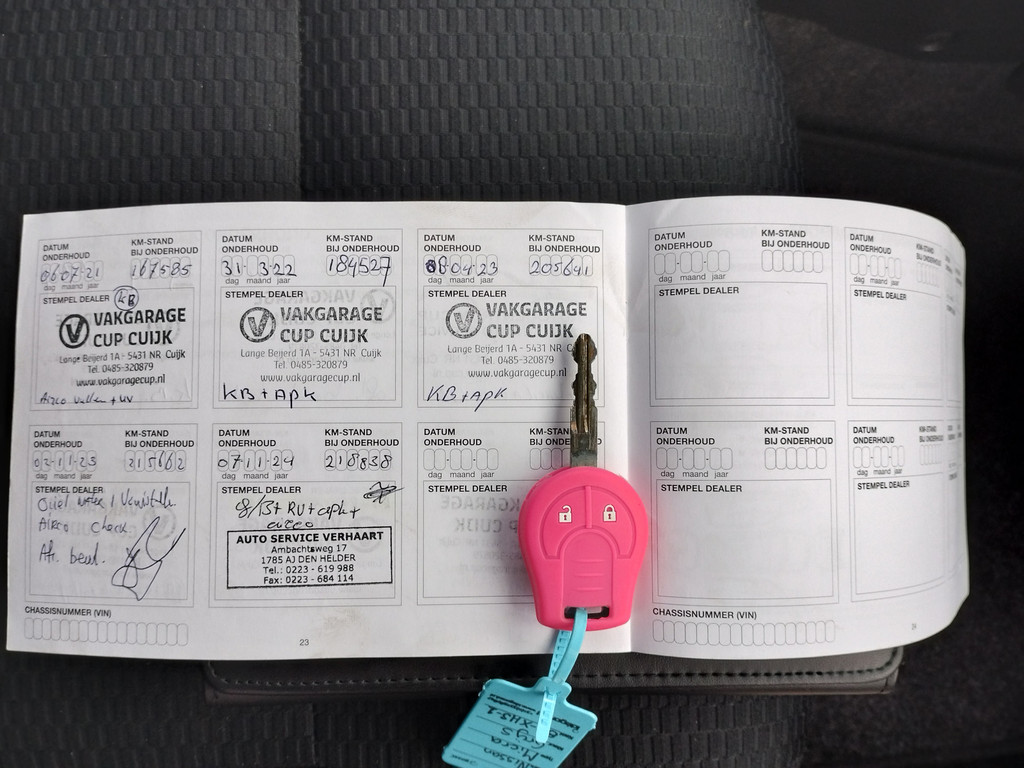 DATUM ONDERHOUD
KM-STAND BIJ ONDERHOUD
06 07 21
167585
dag maand jaar
STEMPEL DEALER
KB
VAKGARAGE
CUP CUIJK
Lange Beijerd 1A - 5431 NR Cuijk
Tel. 0485-320879
www.vakgaragecup.nl
Airco vullen + uv
DATUM ONDERHOUD
KM-STAND BIJ ONDERHOUD
31 3 22
184527
dag maand jaar
STEMPEL DEALER
VAKGARAGE
CUP CUIJK
Lange Beijerd 1A - 5431 NR Cuijk
Tel. 0485-320879
www.vakgaragecup.nl
KB + Apk
DATUM ONDERHOUD
KM-STAND BIJ ONDERHOUD
04 23
205641
dag maand jaar
STEMPEL DEALER
VAKGARAGE
CUP CUIJK
Lange Beijerd 1A - 5431 NR Cuijk
Tel. 0485-320879
www.vakgaragecup.nl
KB + Apk
DATUM ONDERHOUD
KM-STAND BIJ ONDERHOUD
dag maand jaar
STEMPEL DEALER
DATUM ONDERHOUD
KM-STAND BIJ ONDERHOUD
dag maand jaar
STEMPEL DEALER
DATUM ONDERHOUD
KM-STAND BIJ ONDERHOUD
215662
dag maand jaar
STEMPEL DEALER
Airco check
DATUM ONDERHOUD
KM-STAND BIJ ONDERHOUD
07 11 24
218838
dag maand jaar
STEMPEL DEALER
airco
AUTO SERVICE VERHAART
Ambachtsweg 17
1785 AJ DEN HELDER
Tel.: 0223 - 619 988
Fax: 0223 - 684 114
DATUM ONDERHOUD
KM-STAND
BIJ
dag maand jaar
STEMPEL DEALER
DATUM ONDERHOUD
KM-STAND BIJ ONDERHOUD
dag maand jaar
STEMPEL DEALER
DATUM ONDERHOUD
KM-STAND BIJ ONDERHOUD
dag maand jaar
STEMPEL DEALER
CHASSISNUMMER (VIN)
23
CHASSISNUMMER (VIN)
24
Nissan
Micra
Grys